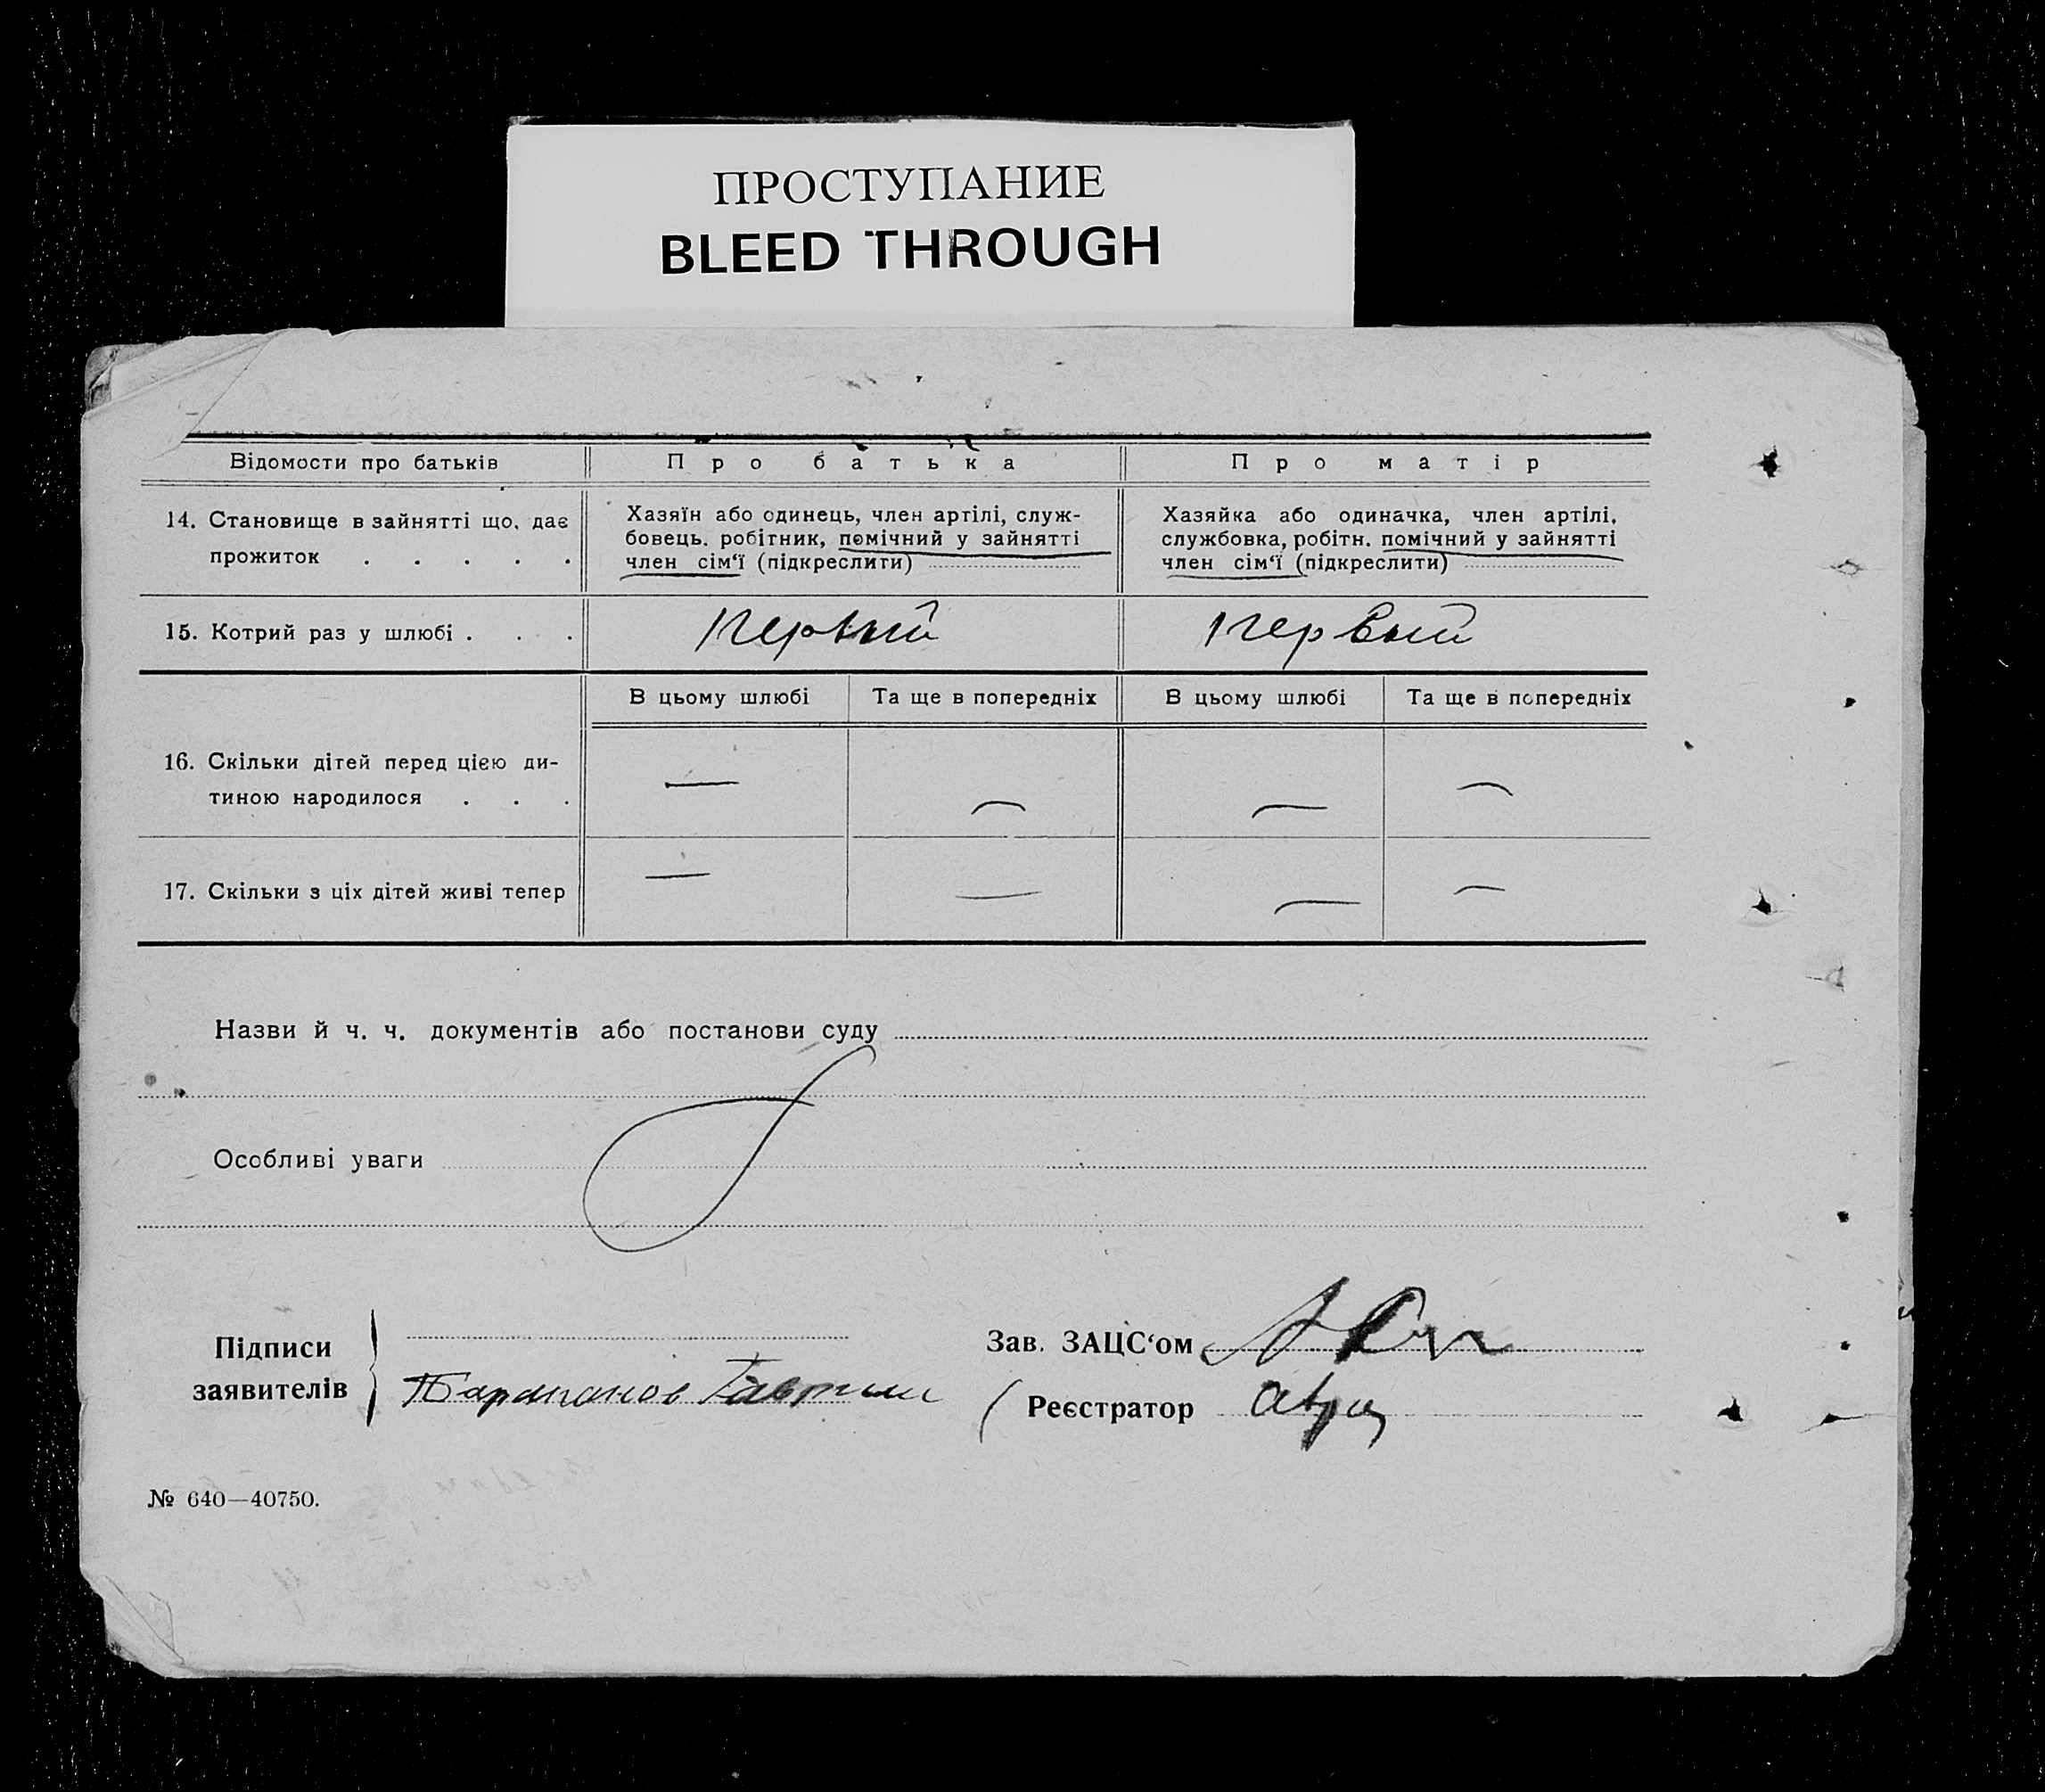 ПРОСТУПАНИЕ
BLEED THROUGH
Відомости про батьків
Про батька
Про матір
14. Становище в зайнятті що, дає
прожиток . . . . .
Хазяїн або одинець, член артілі, служ-
бовець, робітник, помічний у зайнятті
член сім‘ї (підкреслити)
Хазяйка або одиначка, член артілі,
службовка, робітн. помічний у зайнятті
член сім‘ї (підкреслити)
15. Котрий раз у шлюбі . . .
Первый
Первый
В цьому шлюбі
Та ще в попередніх
В цьому шлюбі
Та ще в попередніх
16. Скільки дітей перед цією ди-
тиною народилося . . .
— — — —
17. Скільки з ціх дітей живі тепер
— — — —
Назви й ч. ч. документів або постанови суду
Особливі уваги
Підписи
заявителів
Зав. ЗАЦС‘ом
Реєстратор
№ 640—40750.